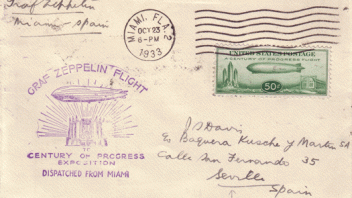 Graf Zeppelin
Miami - Spain
MIAMI, FLA. 2
OCT 23
6-PM
1933
UNITED STATES POSTAGE
A CENTURY OF PROGRESS FLIGHT
50¢
GRAF ZEPPELIN FLIGHT
CENTURY OF PROGRESS
EXPOSITION
DISPATCHED FROM MIAMI
P S Davis
Baquera Kusche y Martin SA
Calle San Fernando 35
Seville
Spain